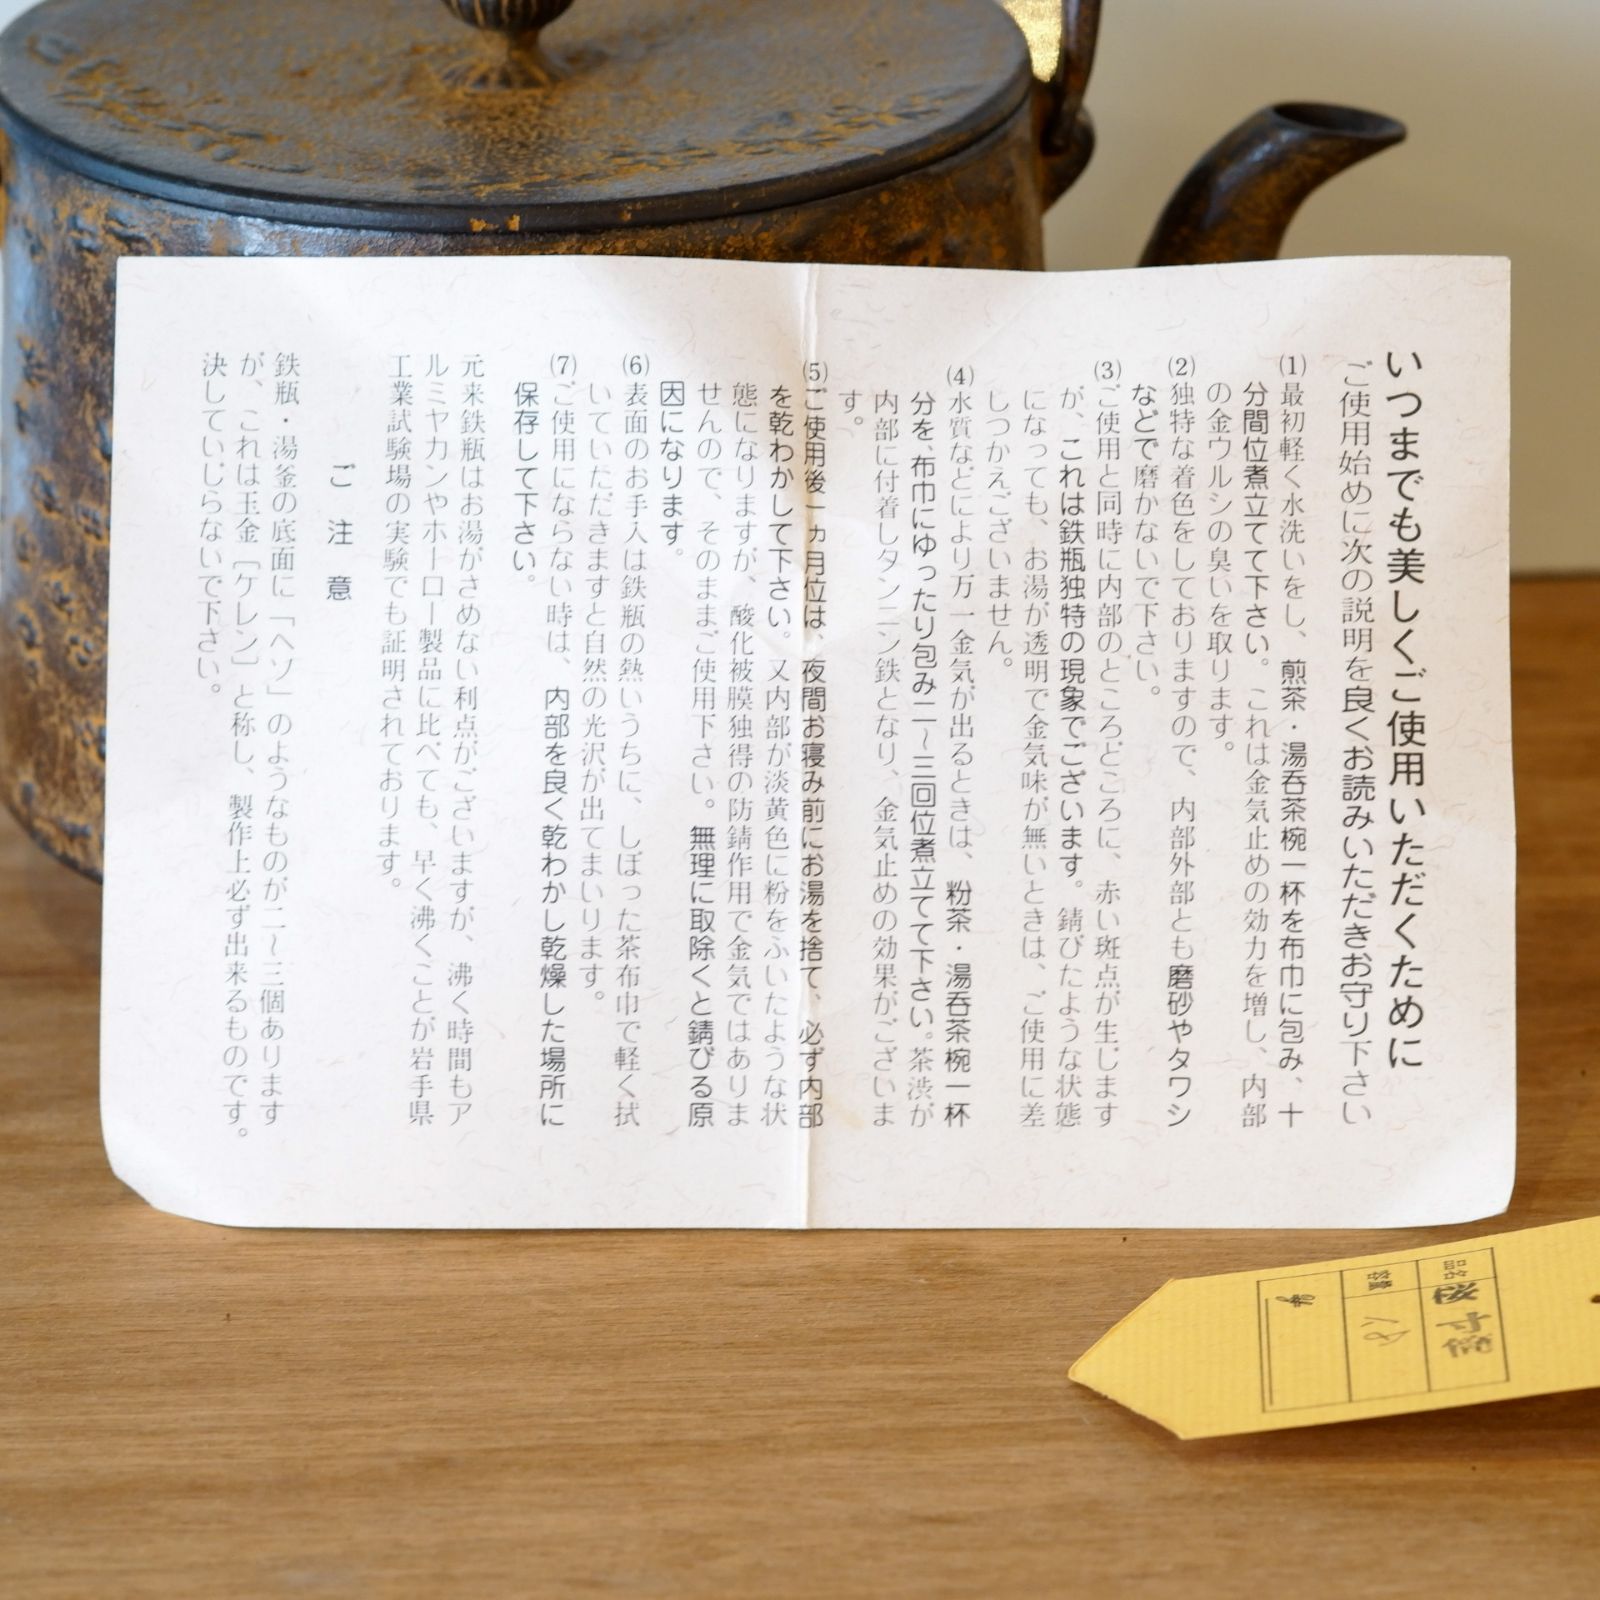 いつまでも美しくご使用いただくために
ご使用始めに次の説明を良くお読みいただきお守り下さい
(1)最初軽く水洗いをし、煎茶・湯呑茶椀一杯を布巾に包み、十
分間位煮立てて下さい。これは金気止めの効力を増し、内部
の金ウルシの臭いを取ります。
(2)独特な着色をしておりますので、内部外部とも磨砂やタワシ
などで磨かないで下さい。
(3)ご使用と同時に内部のところどころに、赤い斑点が生じます
が、これは鉄瓶独特の現象でございます。錆びたような状態
になっても、お湯が透明で金気味が無いときは、ご使用に差
しつかえございません。
(4)水質などにより万一金気が出るときは、粉茶・湯呑茶椀一杯
分を、布巾にゆったり包み二〜三回位煮立てて下さい。茶渋が
内部に付着しタンニン鉄となり、金気止めの効果がございま
す。
(5)ご使用後一ヵ月位は、夜間お寝み前にお湯を捨て、必ず内部
を乾わかして下さい。又内部が淡黄色に粉をふいたような状
態になりますが、酸化被膜独得の防錆作用で金気ではありま
せんので、そのままご使用下さい。無理に取除くと錆びる原
因になります。
(6)表面のお手入は鉄瓶の熱いうちに、しぼった茶布巾で軽く拭
いていただきますと自然の光沢が出てまいります。
(7)ご使用にならない時は、内部を良く乾わかし乾燥した場所に
保存して下さい。
元来鉄瓶はお湯がさめない利点がございますが、沸く時間もア
ルミヤカンやホーロー製品に比べても、早く沸くことが岩手県
工業試験場の実験でも証明されております。
ご注意
鉄瓶・湯釜の底面に「ヘソ」のようなものが二〜三個あります
が、これは玉金〔ケレン〕と称し、製作上必ず出来るものです。
決していじらないで下さい。
品名
容量